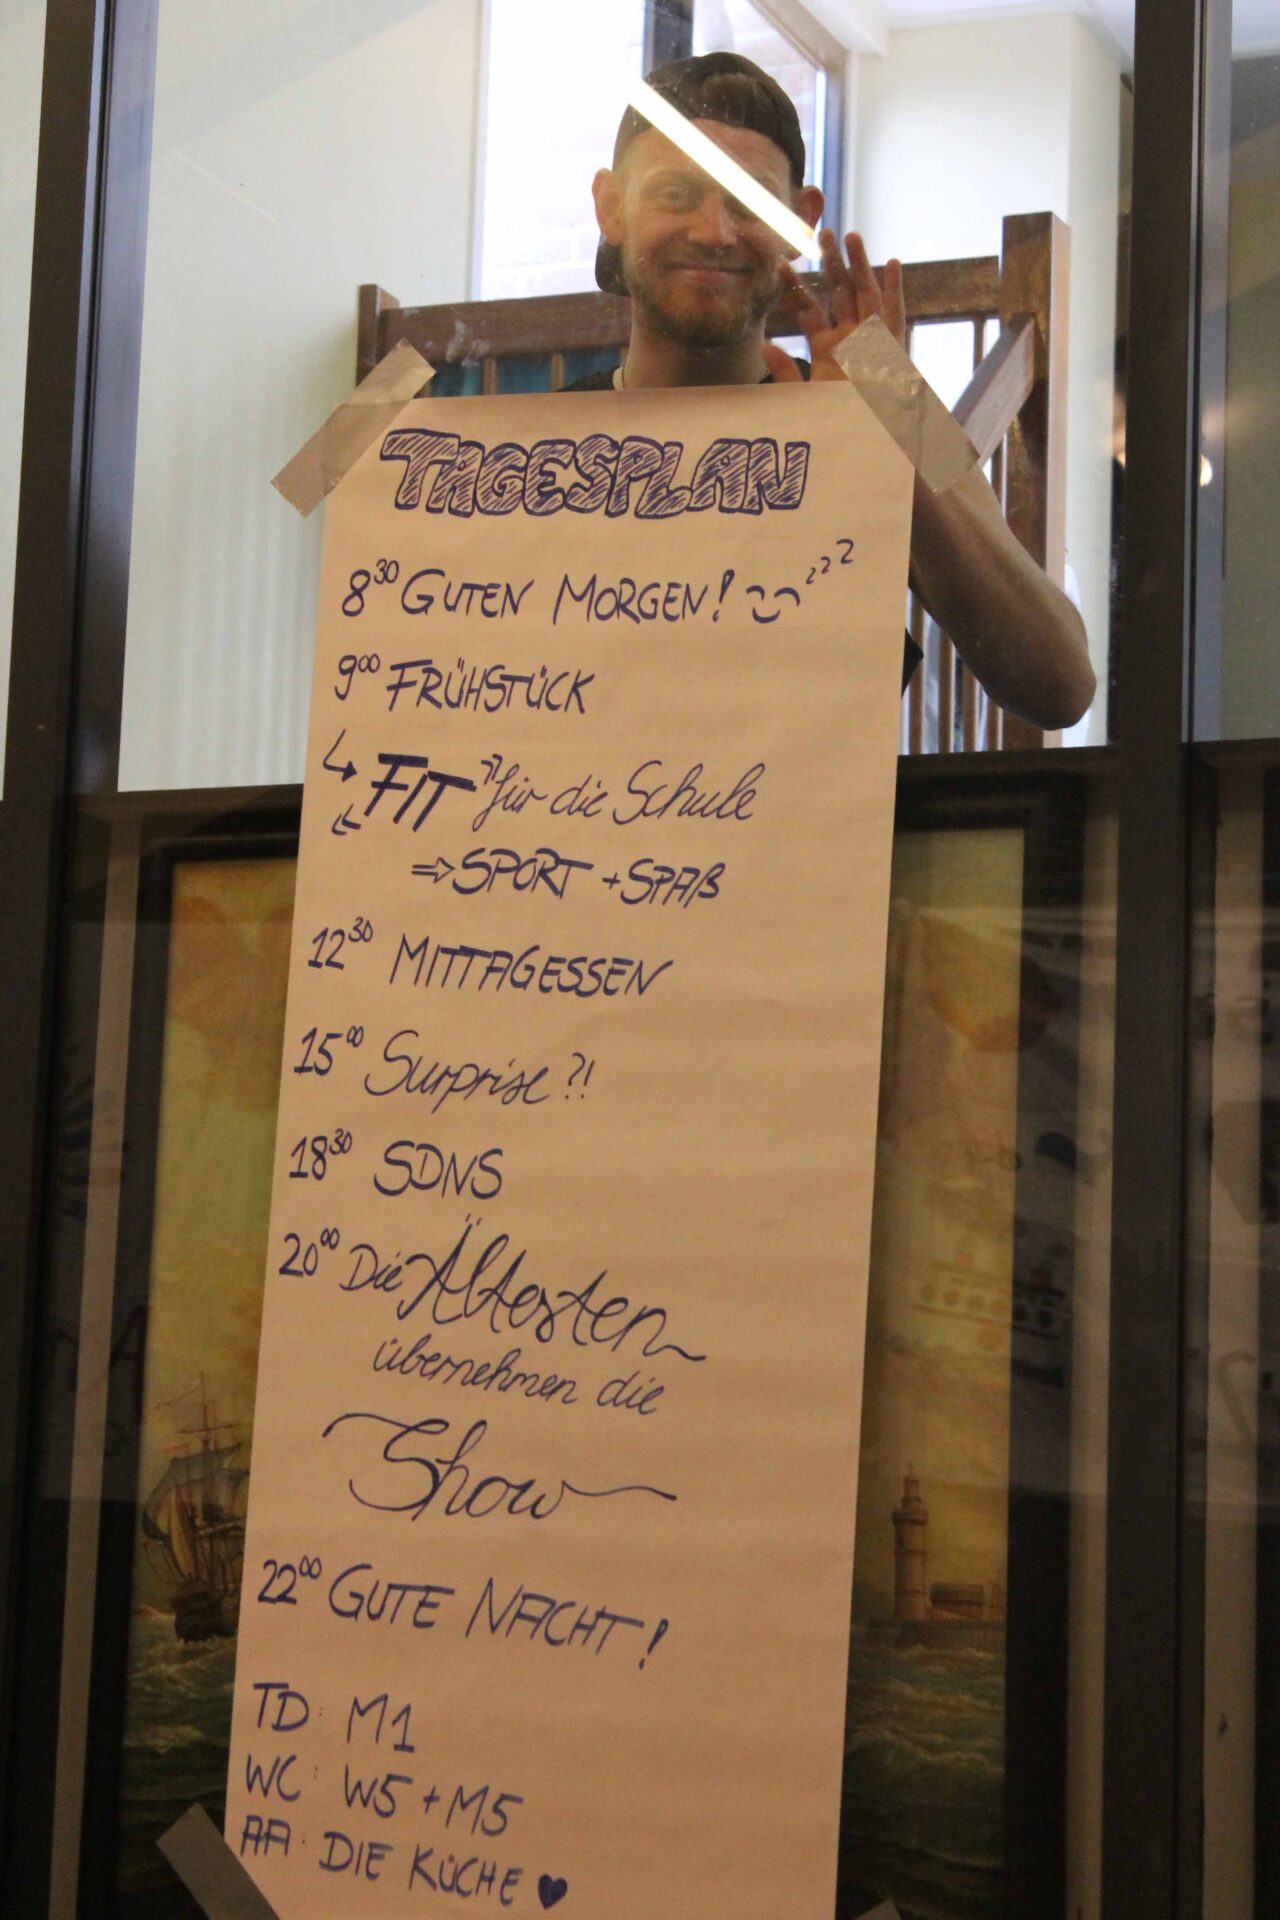 TAGESPLAN
8³⁰ GUTEN MORGEN! zzz
9⁰⁰ FRÜHSTÜCK
FIT für die Schule
⇒ SPORT + SPAß
12³⁰ MITTAGESSEN
15⁰⁰ Surprise ?!
18³⁰ SDNS
20⁰⁰ Die Ältesten
übernehmen die
Show
22⁰⁰ GUTE NACHT!
TD: M1
WC: W5 + M5
AA: DIE KÜCHE ♥